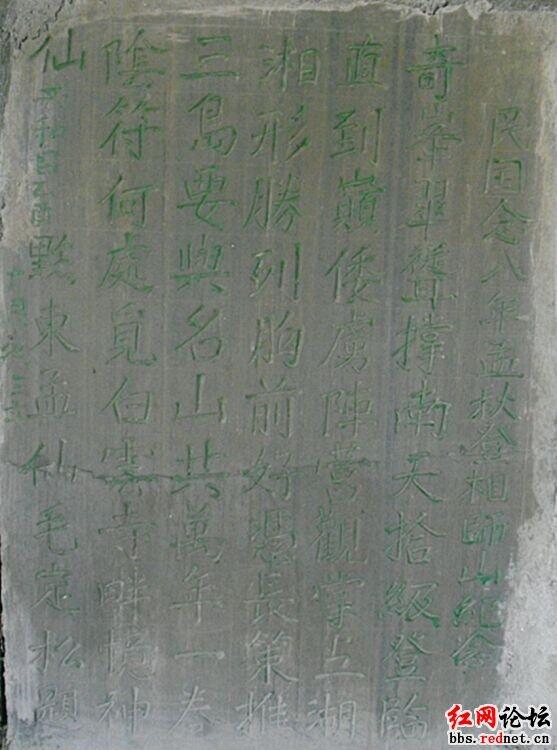 民国念八年孟秋登相師山紀念
奇峯翠聳撐南天拾級登臨
直到巔倭虜陣營觀掌上湖
湘形勝列胸前好憑長策推
三島要與名山共萬年一卷
陰符何處覓白雲寺畔憶神
仙
黔東孟仙毛定松題
红网论坛
bbs.rednet.cn